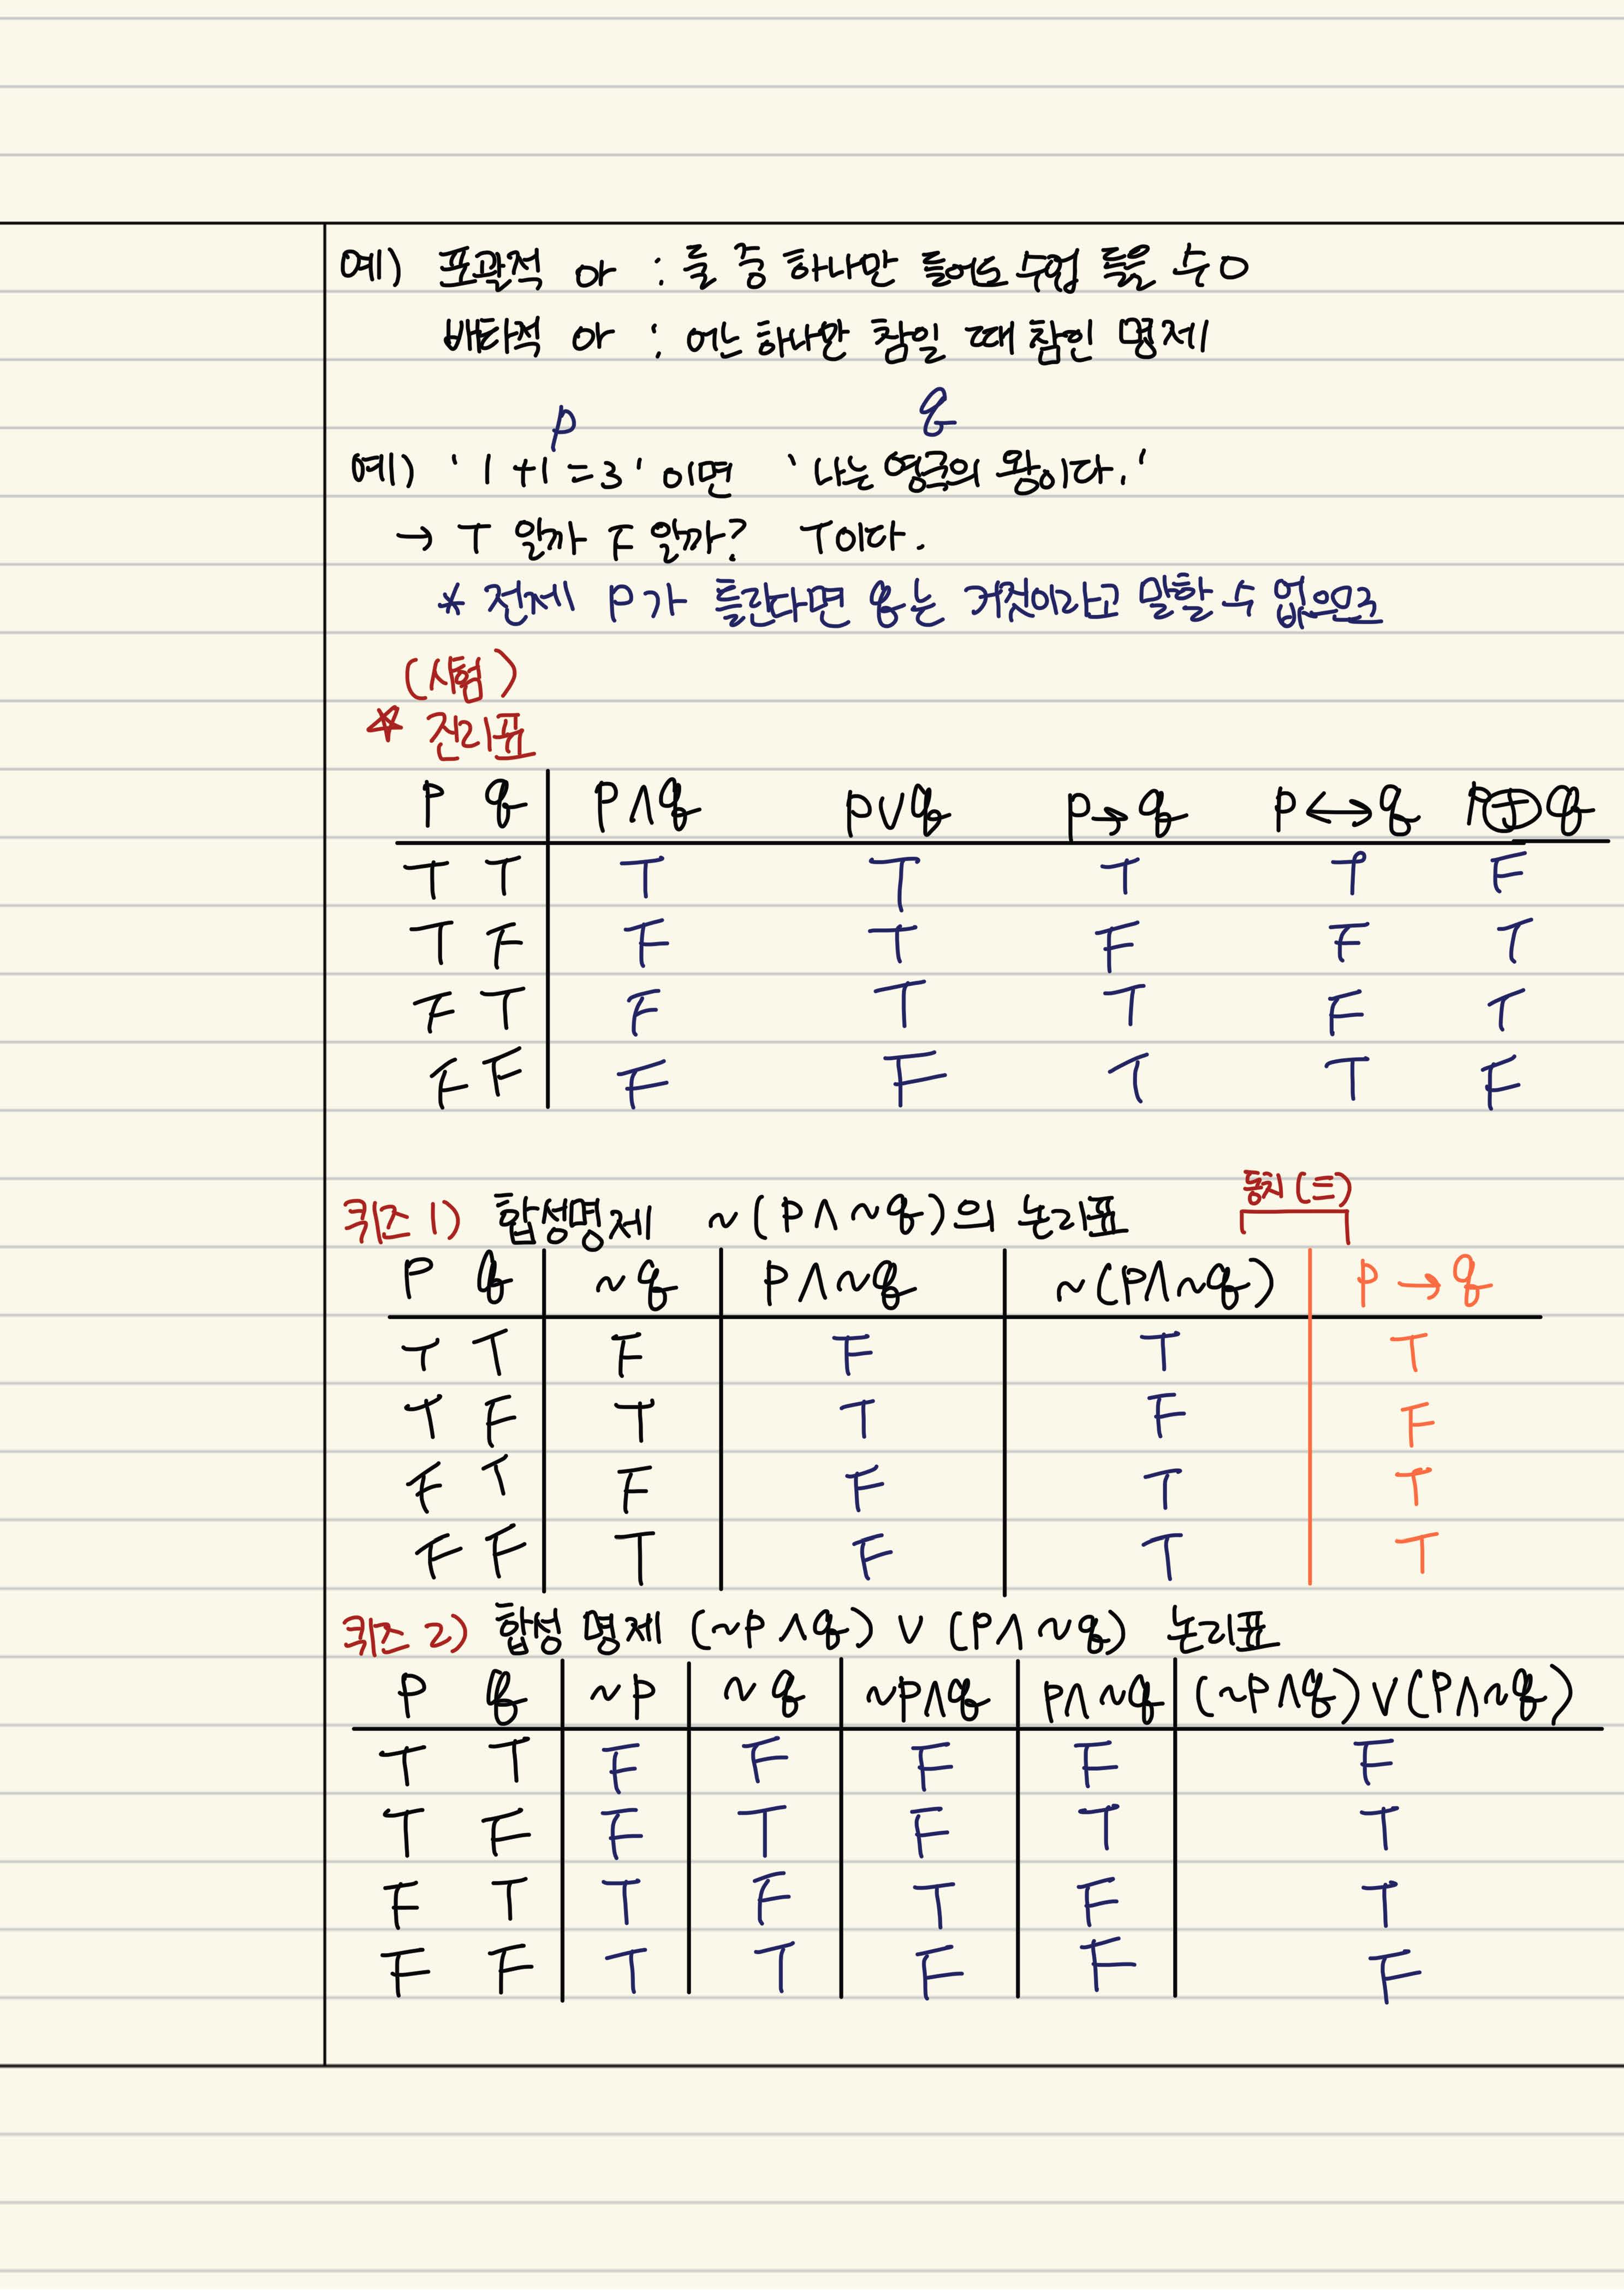 예) 포괄적 or : 둘 중 하나만 들어도 수업 들을 수 O
배타적 or : 어느 하나만 참일 때 참인 명제
p q
예) '1+1=3' 이면 '나는 영국의 왕이다.'
→ T 일까 F 일까? T이다.
* 전제 P가 틀린다면 q는 거짓이라고 말할 수 없으므로
(시험)
☆ 진리표
P q P∧q P∨q P→q P↔q P⊕q
T T T T T T F
T F F T F F T
F T F T T F T
F F F F T T F
퀴즈 1) 합성명제 ~(P∧~q)의 논리표 동치(≡)
P q ~q P∧~q ~(P∧~q) P→q
T T F F T T
T F T T F F
F T F F T T
F F T F T T
퀴즈 2) 합성 명제 (~P∧q) ∨ (P∧~q) 논리표
P q ~P ~q ~P∧q P∧~q (~P∧q)∨(P∧~q)
T T F F F F F
T F F T F T T
F T T F T F T
F F T T F F F